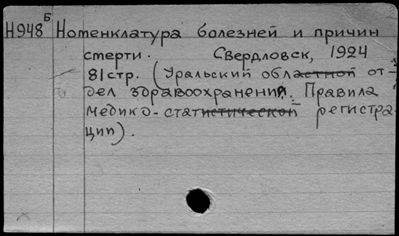 Н948Б Номенклатура болезней и причин
смерти. Свердловск, 1924
81стр. (Уральский областной от-
дел здравоохранения. Правила
медико-статистической регистра-
ции).